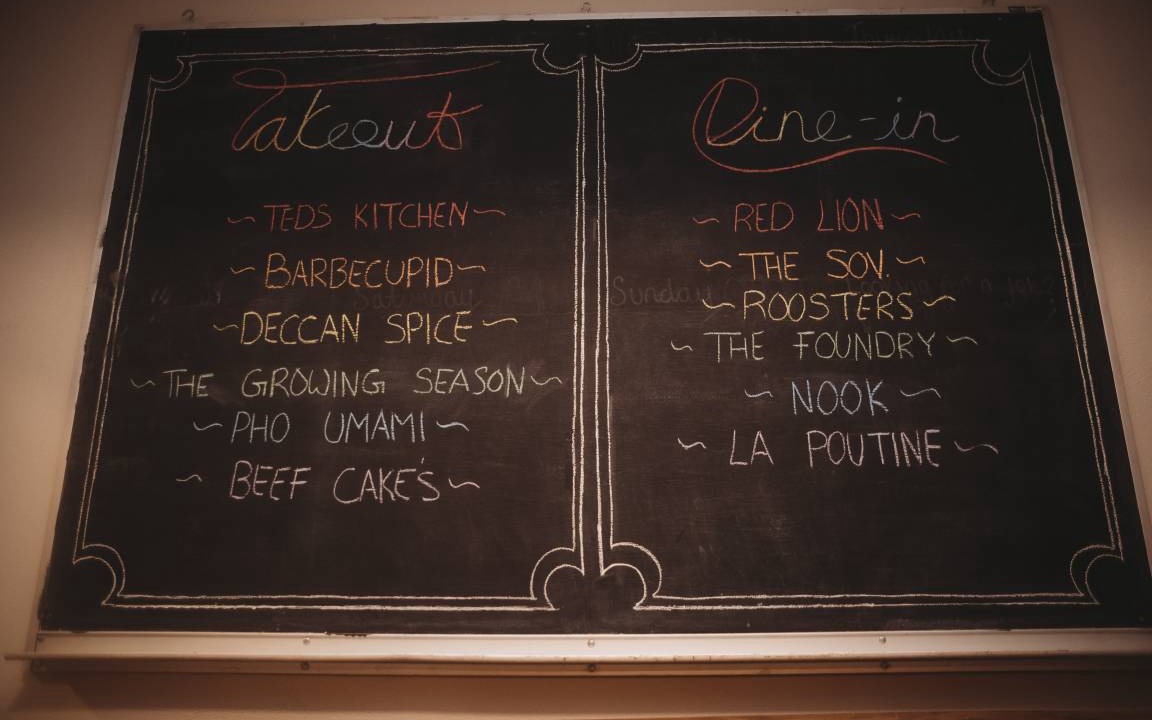 Takeout
~TEDS KITCHEN~
~BARBECUPID~
~DECCAN SPICE~
~THE GROWING SEASON~
~PHO UMAMI~
~BEEF CAKE'S~
Dine-in
~RED LION~
~THE SOV.~
~ROOSTERS~
~THE FOUNDRY~
~NOOK~
~LA POUTINE~
Saturday
Sunday